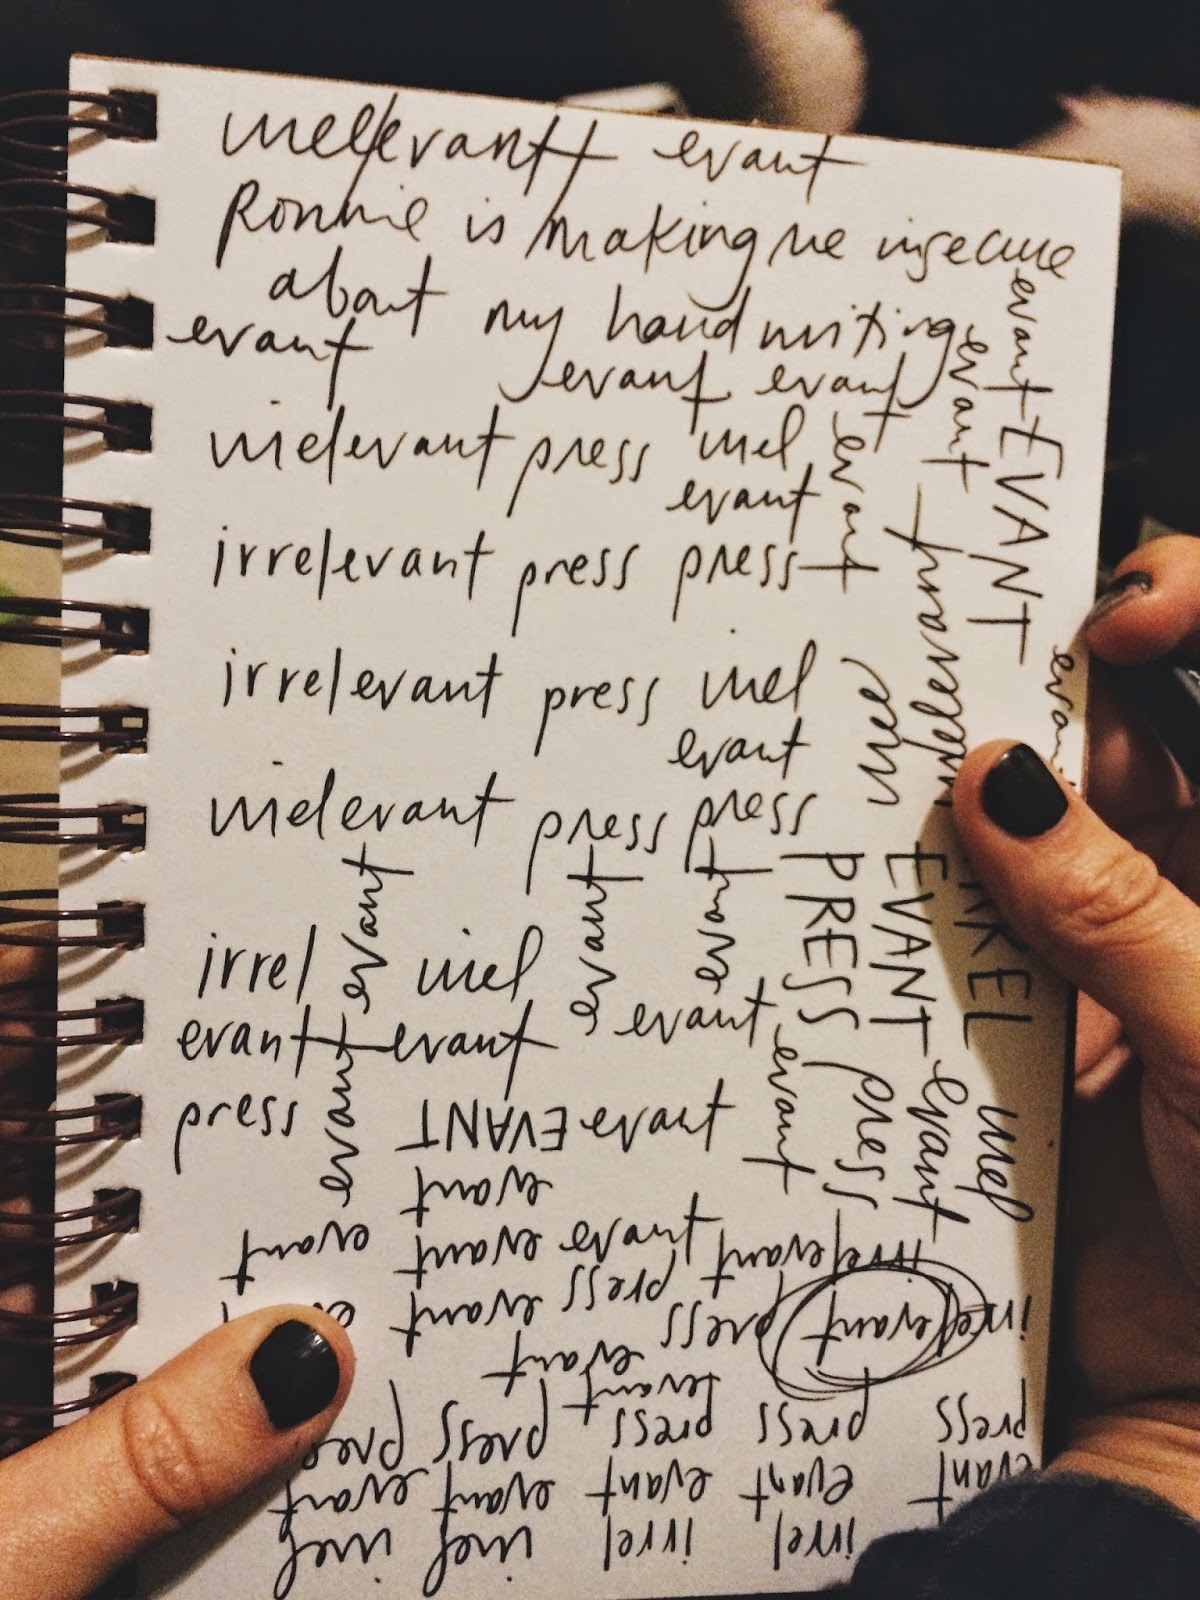 irrelevant evant
Ronnie is making me insecure
about my handwriting
evant
evant evant
irrelevant press irrel
evant
irrelevant press press
irrelevant press irrel
evant
irrelevant press press
irrel irrel
evant evant
press
evant
evant
evant
evant
evant
evant
evant
evant
evant
EVANT
irrelevant
irrel
EVANT
PRESS press
evant
evant
irrel
EVANT evant
evant
evant evant evant
irrelevant press evant
irrelevant press
evant evant
evant
press press press press press
evant evant evant evant evant
irrel irrel irrel irrel irrel